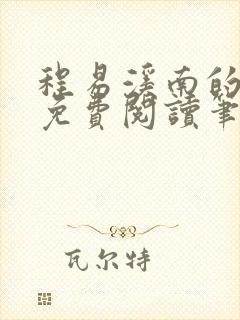 程易溪南的
免費閱讀筆
瓦尔特